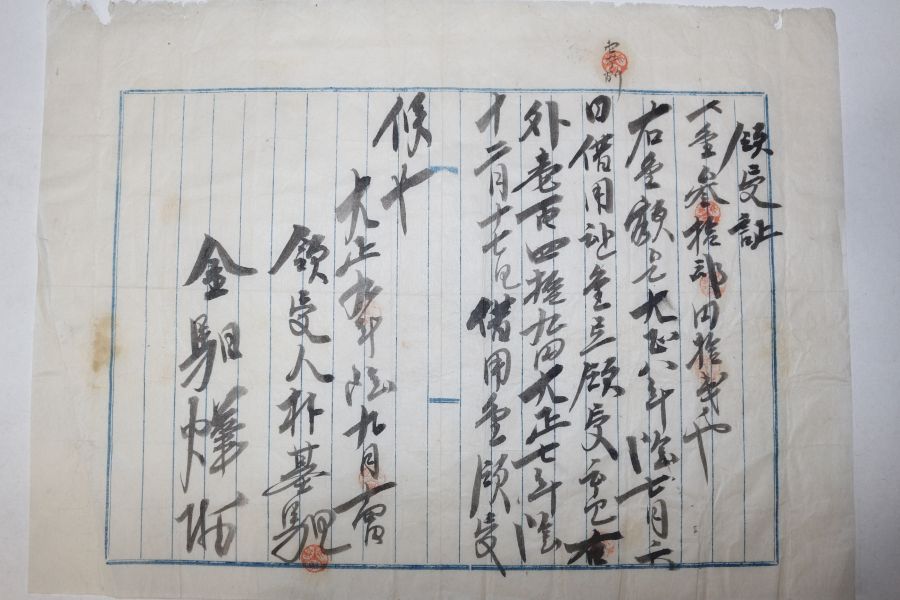 領受証
一金參拾部円拾戔也
右金額은大正八年陰七月六
日借用証金으로領受 右
外壱百四拾九円大正七年陰
十二月十七日借用金領受
候也
大正九年陰九月 日
領受人朴基馹
金馹